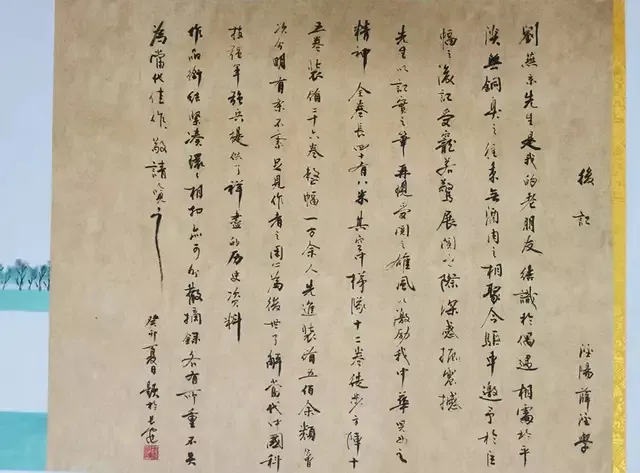 後記
涇陽薛涇學
劉燕京先生是我的老朋友結識於偶遇相處於平
淡無銅臭之往來無酒肉之相聚今驅車邀予於巨
幅之後記受寵若驚展閱之際深感振寰撼
先生以記實之筆再現受閱之雄風以激勵我中華
精神全卷長四十有八米其空中梯隊十二卷徒步方陣十
五卷裝備二十六卷整幅一万余人先進裝備五佰余類
次分明有条不紊足見作者之用心為後世了解當代中國科
技强軍强兵提供了祥盡的历史資料
作品銜結緊凑環環相扣亦可分散摘錄各有所重不失
為當代佳作敬請賞之
癸卯夏日題於